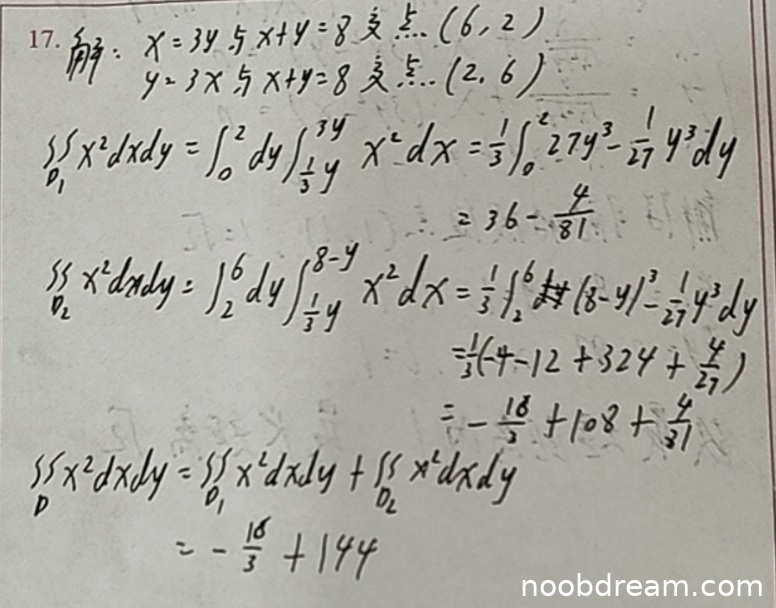 17. 解: x=3y与x+y=8交点(6,2)
y=3x与x+y=8交点(2,6)
∬_{D₁} x²dxdy = ∫₀² dy ∫_{⅓y}^{3y} x²dx = ⅓∫₀² 27y³ - 1/27 y³dy
= 36 - 4/81
∬_{D₂} x²dxdy = ∫₂⁶ dy ∫_{⅓y}^{8-y} x²dx = ⅓∫₂⁶ (8-y)³ - 1/27 y³dy
= ⅓(-4-12+324+4/27)
= -16/3 + 108 + 4/81
∬_D x²dxdy = ∬_{D₁} x²dxdy + ∬_{D₂} x²dxdy
= -16/3 + 144
noobdream.com